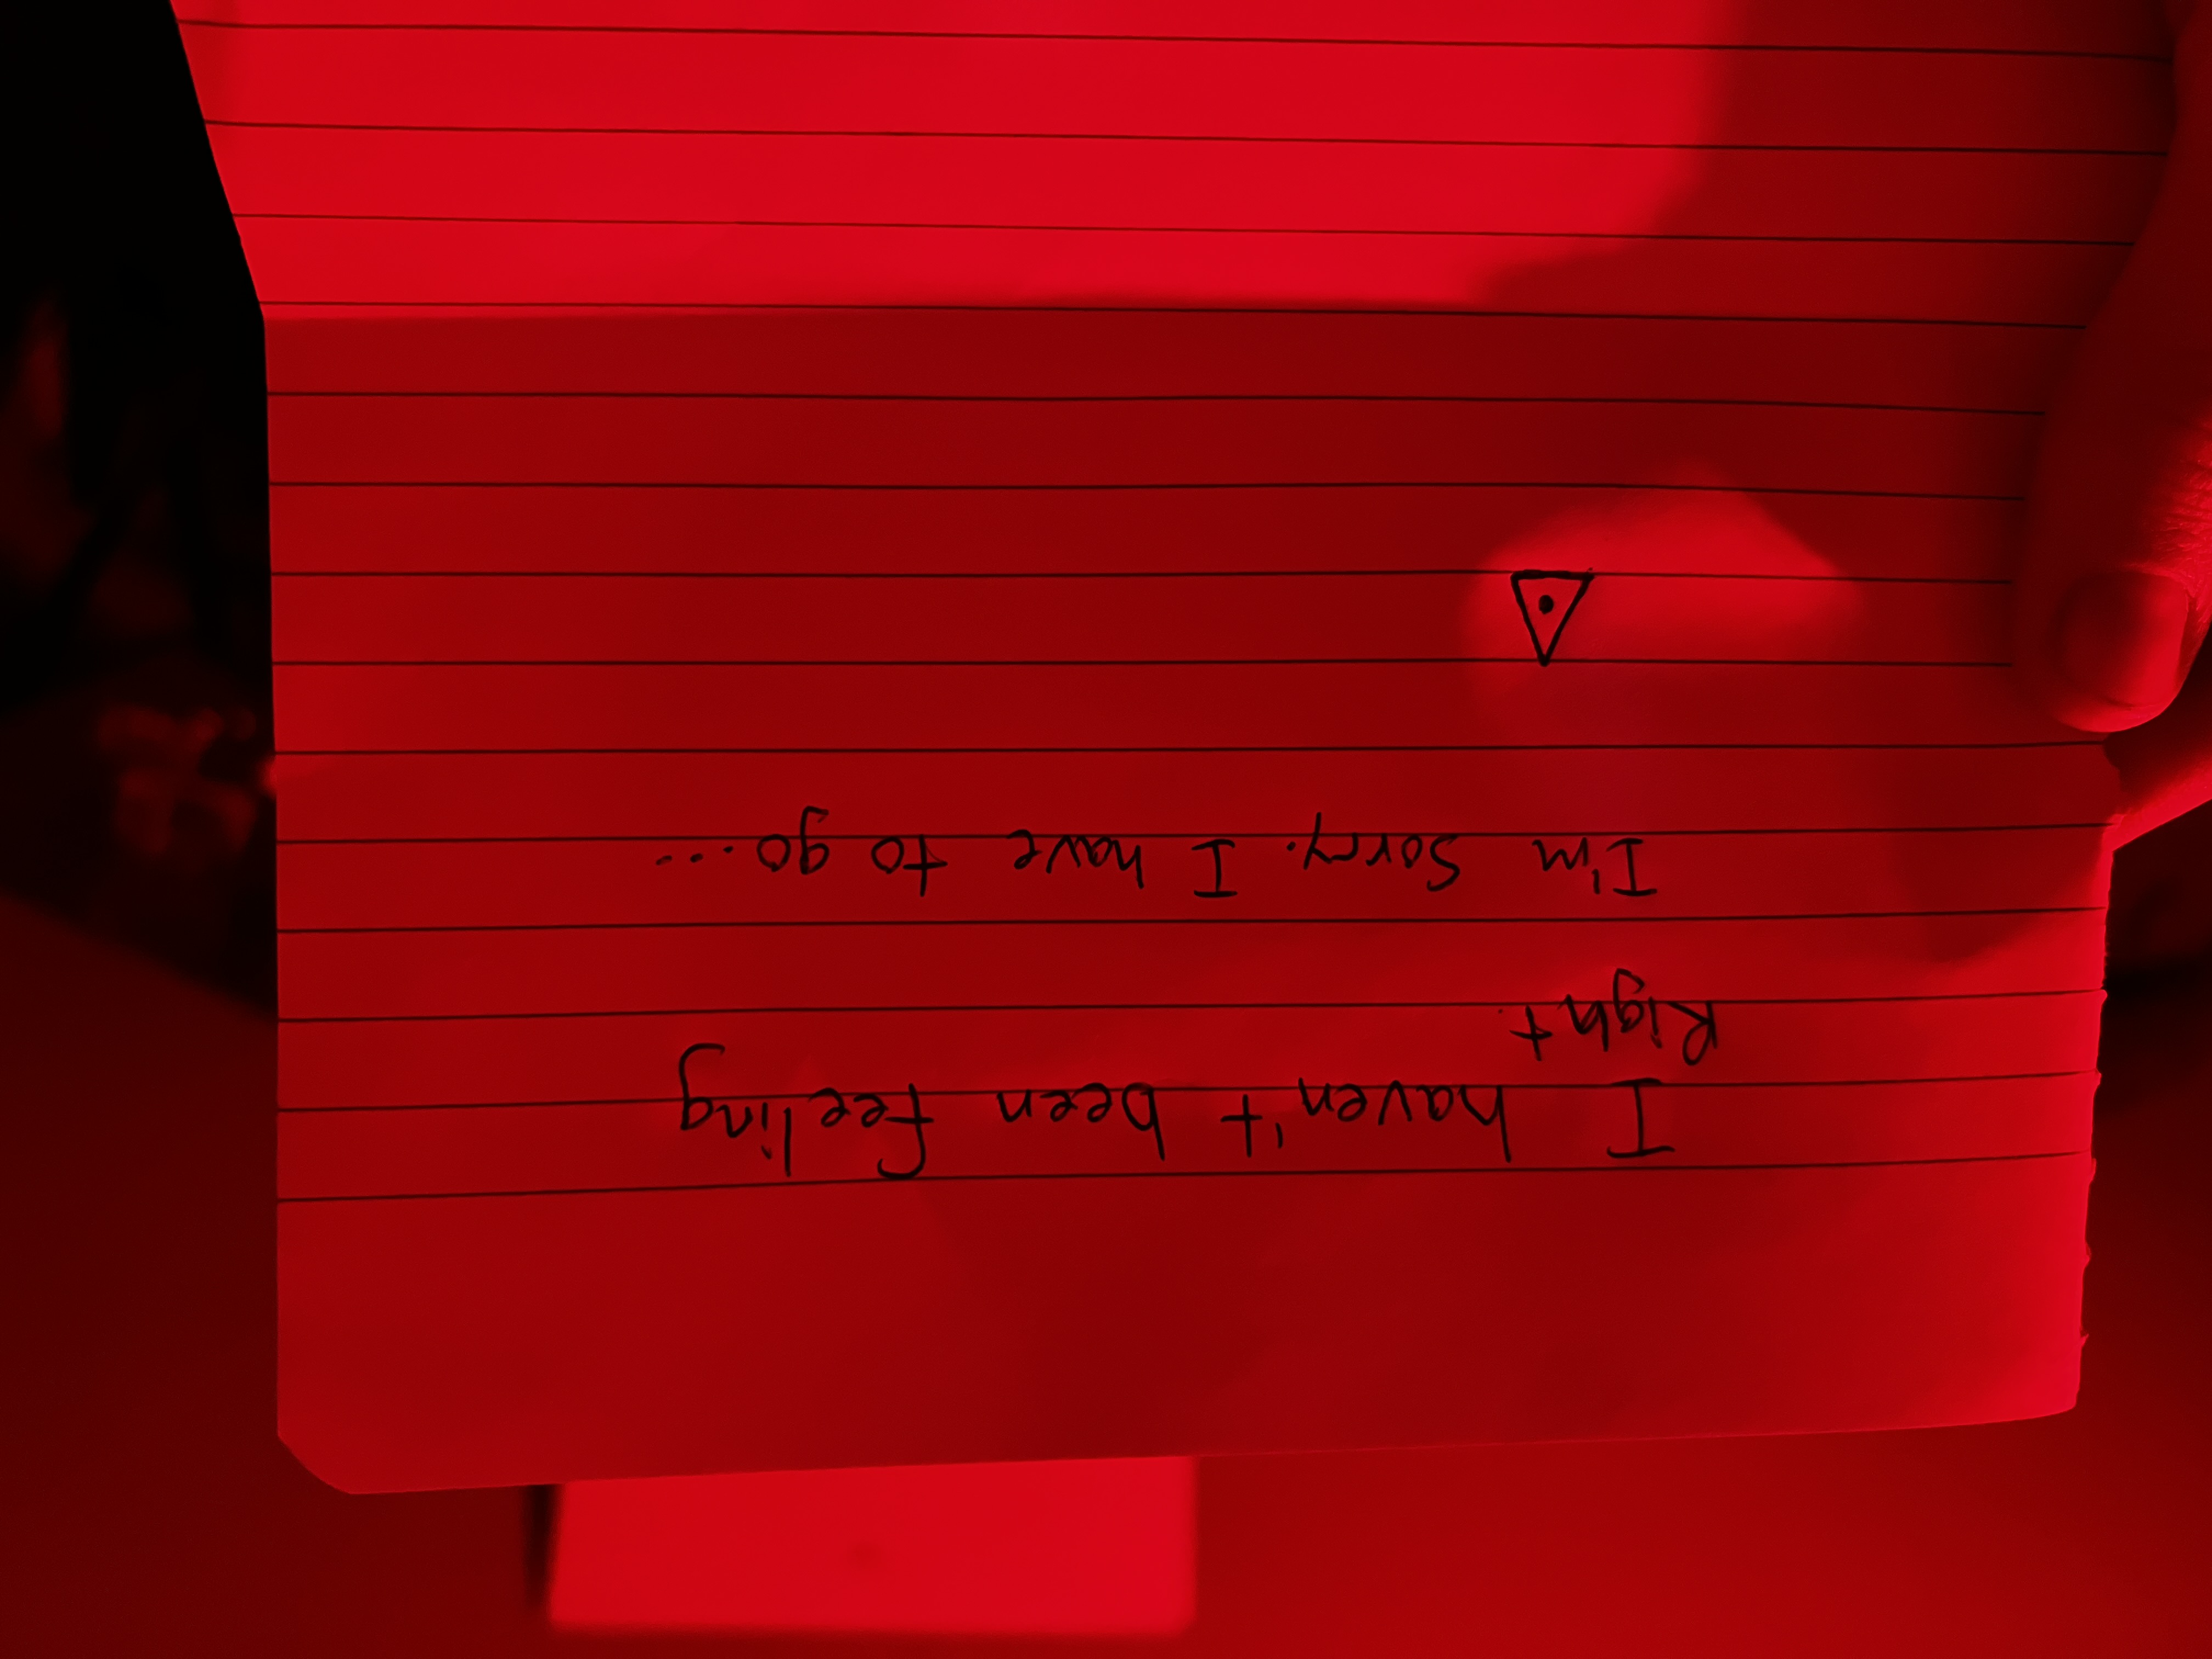 I haven't been feeling
Right.
I'm Sorry. I have to go...